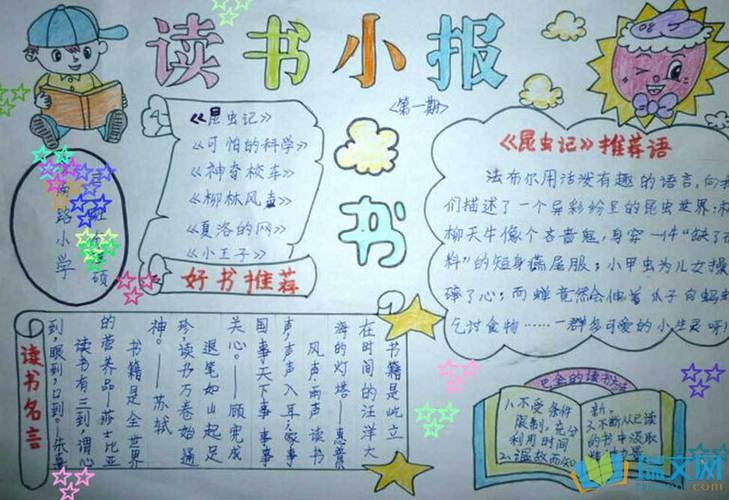 读书小报
<第一期>
《昆虫记》
《可怕的科学》
《神奇校车》
《柳林风声》
《夏洛的网》
《小王子》
好书推荐
书
路小学
硕
《昆虫记》推荐语
法布尔用活泼有趣的语言,向我
们描述了一个异彩纷呈的昆虫世界:
柳天牛像个吝啬鬼,身穿一件“缺了布
料”的短身燕尾服;小甲虫为儿女操
碎了心;而蝉竟然会伸着爪子向蚂蚁
乞讨食物……一群多可爱的小生灵呀!
读书名言
书籍是屹立
在时间的汪洋大
海的灯塔——惠普
风声雨声读书
声,声声入耳,家事
国事天下事事事
关心。——顾宪成
退笔如山起足
珍,读书万卷始通
神。——苏轼
书籍是全世界
的营养品——莎士比亚
读书有三到谓心
到,眼到,口到。
巴金的读书方法
1、不受条件
限制,充分
利用时间
2、温故而知
新。
3、不断从已读
的书中汲取
瑞文网